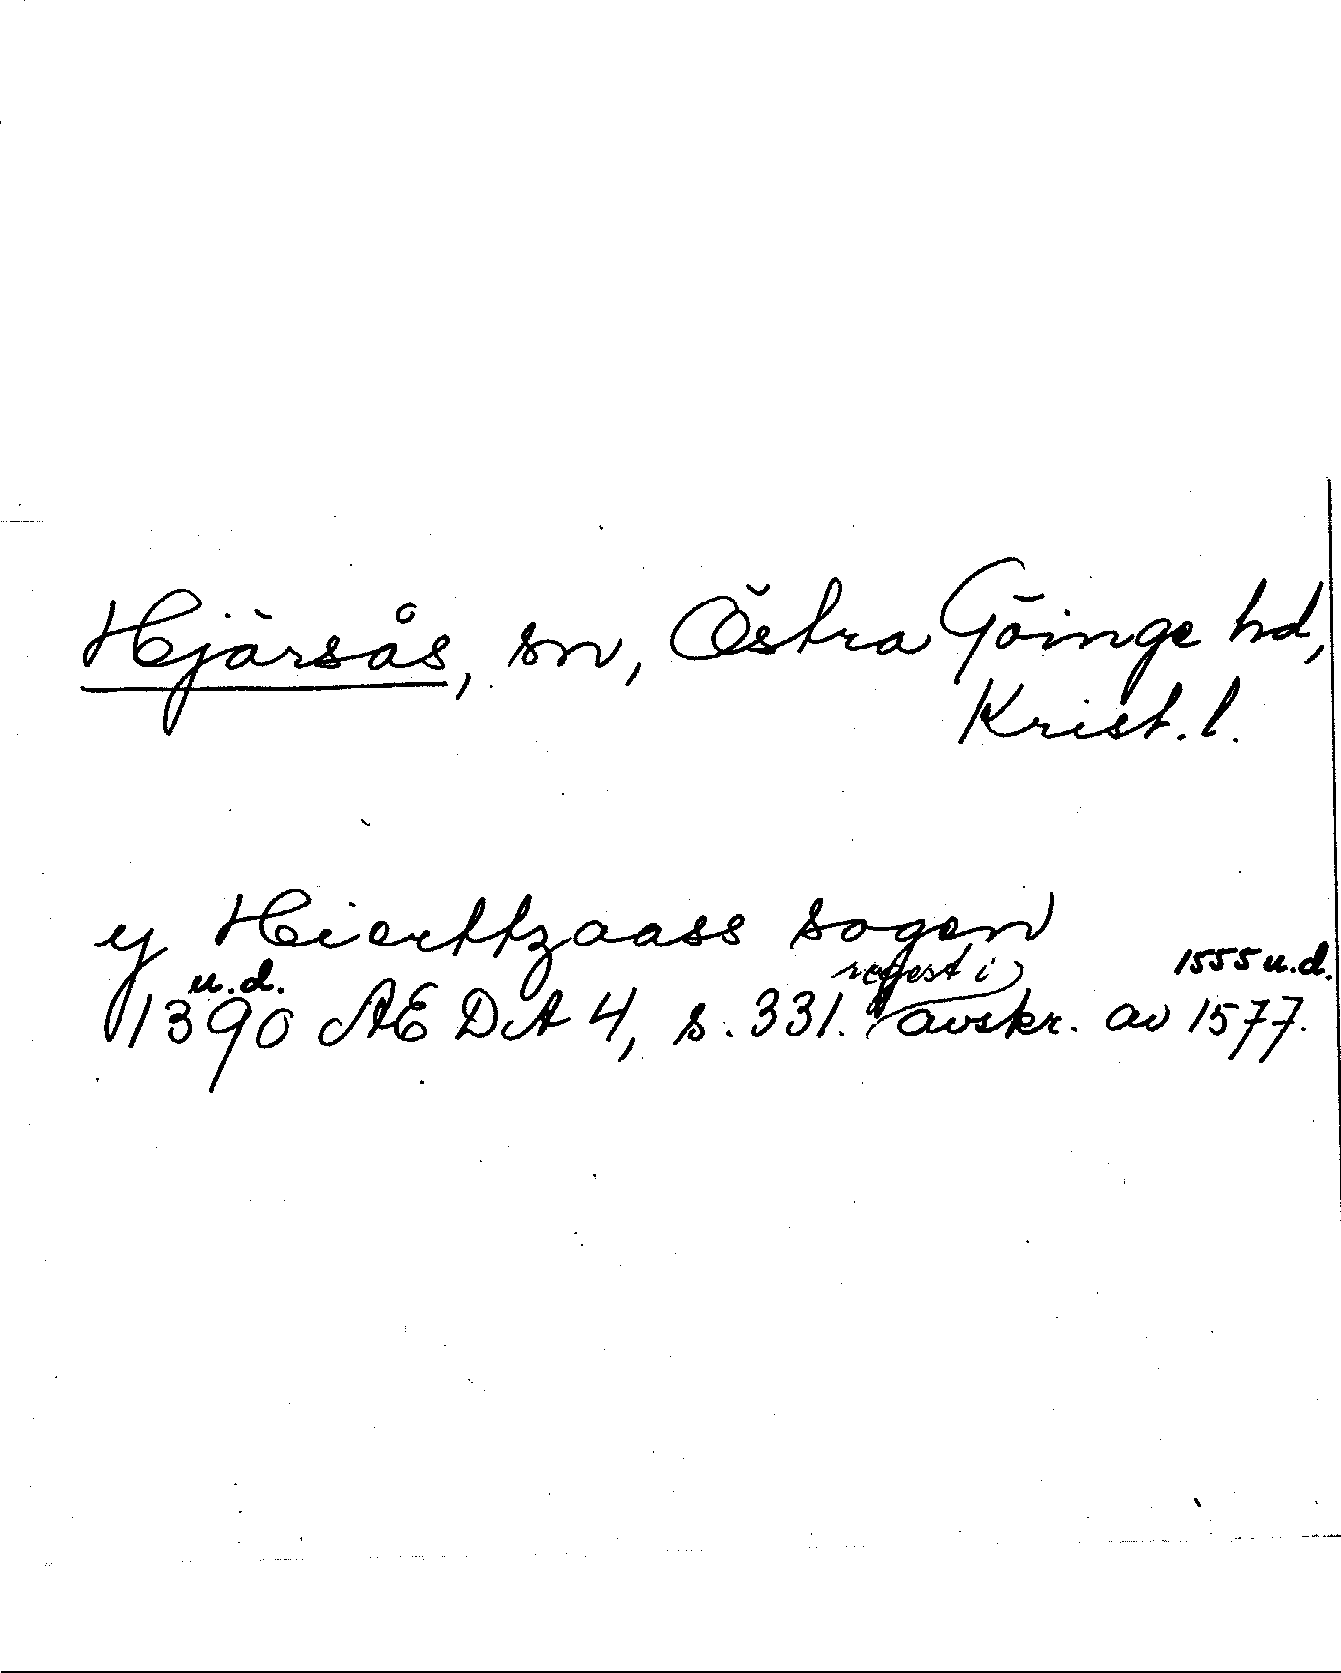 Hjärsås, sn, Östra Göinge hd,
Krist. l.
y Hierttzaass sogen
u.d. regest i 1555 u.d.
1390 AE DA 4, s. 331. avskr. av 1577.